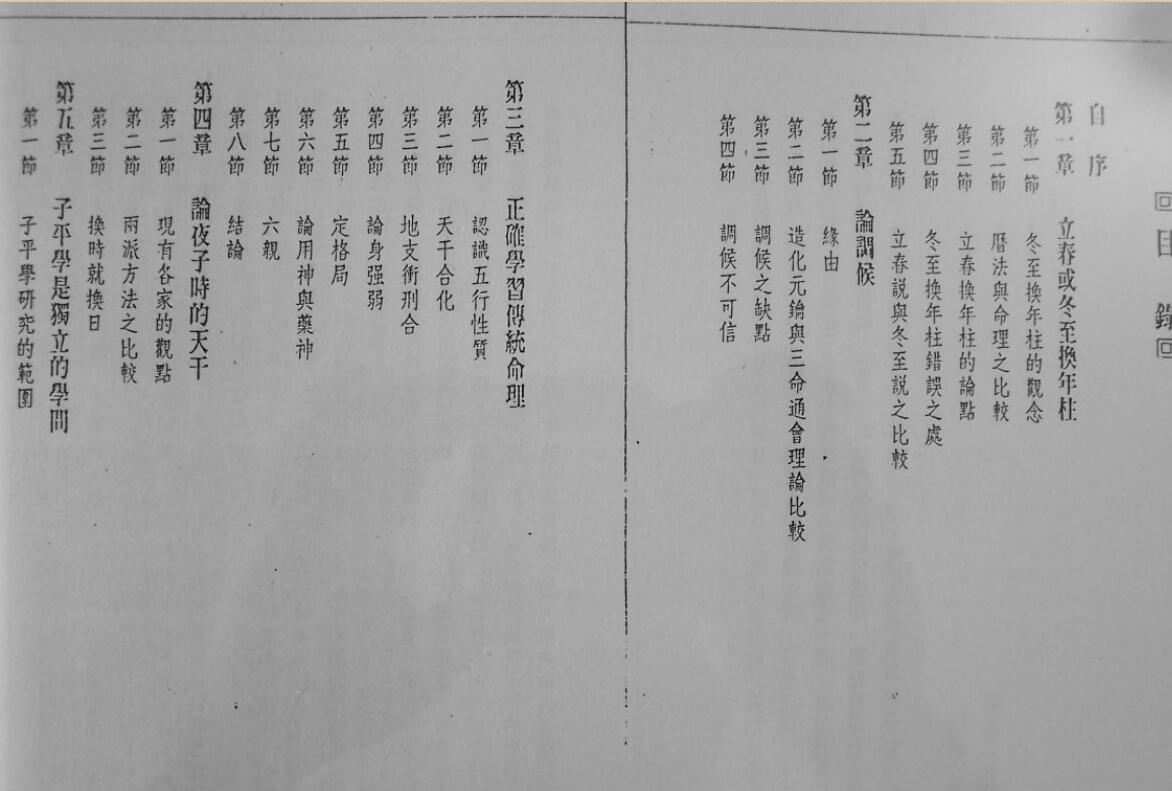 目錄
自序
第一章 立春或冬至換年柱
第一節 冬至換年柱的觀念
第二節 曆法與命理之比較
第三節 立春換年柱的論點
第四節 冬至換年柱錯誤之處
第五節 立春說與冬至說之比較
第二章 論調候
第一節 緣由
第二節 造化元鑰與三命通會理論比較
第三節 調候之缺點
第四節 調候不可信
第三章 正確學習傳統命理
第一節 認識五行性質
第二節 天干合化
第三節 地支衝刑合
第四節 論身强弱
第五節 定格局
第六節 論用神與藥神
第七節 六親
第八節 結論
第四章 論夜子時的天干
第一節 現有各家的觀點
第二節 兩派方法之比較
第三節 換時就換日
第五章 子平學是獨立的學問
第一節 子平學研究的範圍